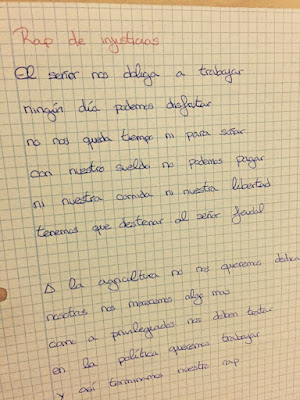 Rap de injusticias
El señor nos obliga a trabajar
ningún día podemos disfrutar
no nos queda tiempo ni para soñar
con nuestro sueldo no podemos pagar
ni nuestra comida ni nuestra libertad
tenemos que desterrar al señor feudal
A la agricultura no nos queremos
nosotros nos merecemos algo mas
como a privilegiados nos deben tratar
en la política queremos trabajar
y así terminamos nuestro rap